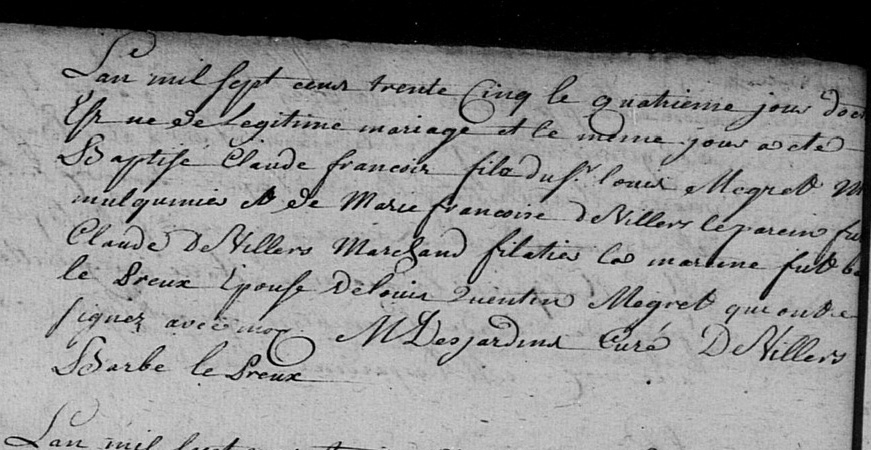 L'an mil sept cens trente Cinq le quatrieme jour doc
Est ne de Legitime mariage et le même jour a eté
Baptisé Claude francois fils du Sr. Louis Megret M
mulquinier et de Marie francoise DeVillers le parein fut
Claude DeVillers Marchand filatier la mareine fut ba
le Preux Epouse De louis Quentin Megret qui ont
signez avec moy M Desjardins Curé DeVillers
Barbe le Preux
L'an mil sept